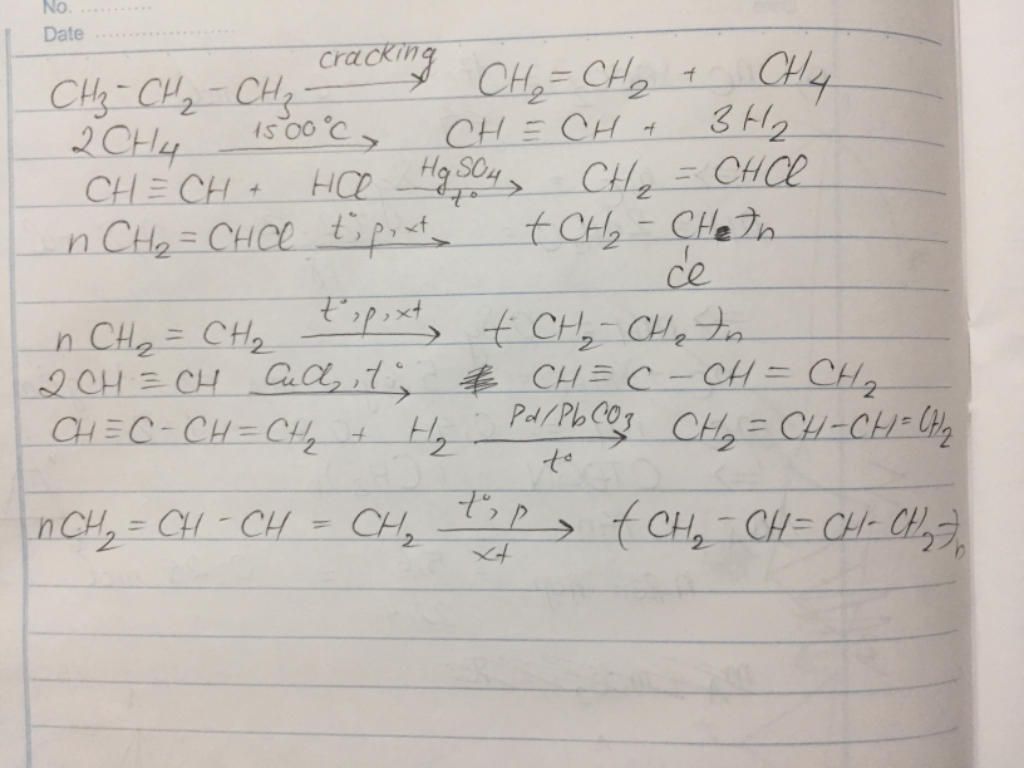 No. ..........
Date ....................
CH₃-CH₂-CH₃ cracking→ CH₂=CH₂ + CH₄
2CH₄ 1500°C→ CH≡CH + 3H₂
CH≡CH + HCl HgSO₄ t°→ CH₂=CHCl
nCH₂=CHCl t°,p,xt→ (CH₂-CH)n
Cl
nCH₂=CH₂ t°,p,xt→ (CH₂-CH₂)n
2CH≡CH CuCl₂,t°→ CH≡C-CH=CH₂
CH≡C-CH=CH₂ + H₂ Pd/PbCO₃ t°→ CH₂=CH-CH=CH₂
nCH₂=CH-CH=CH₂ t°,p xt→ (CH₂-CH=CH-CH₂)n